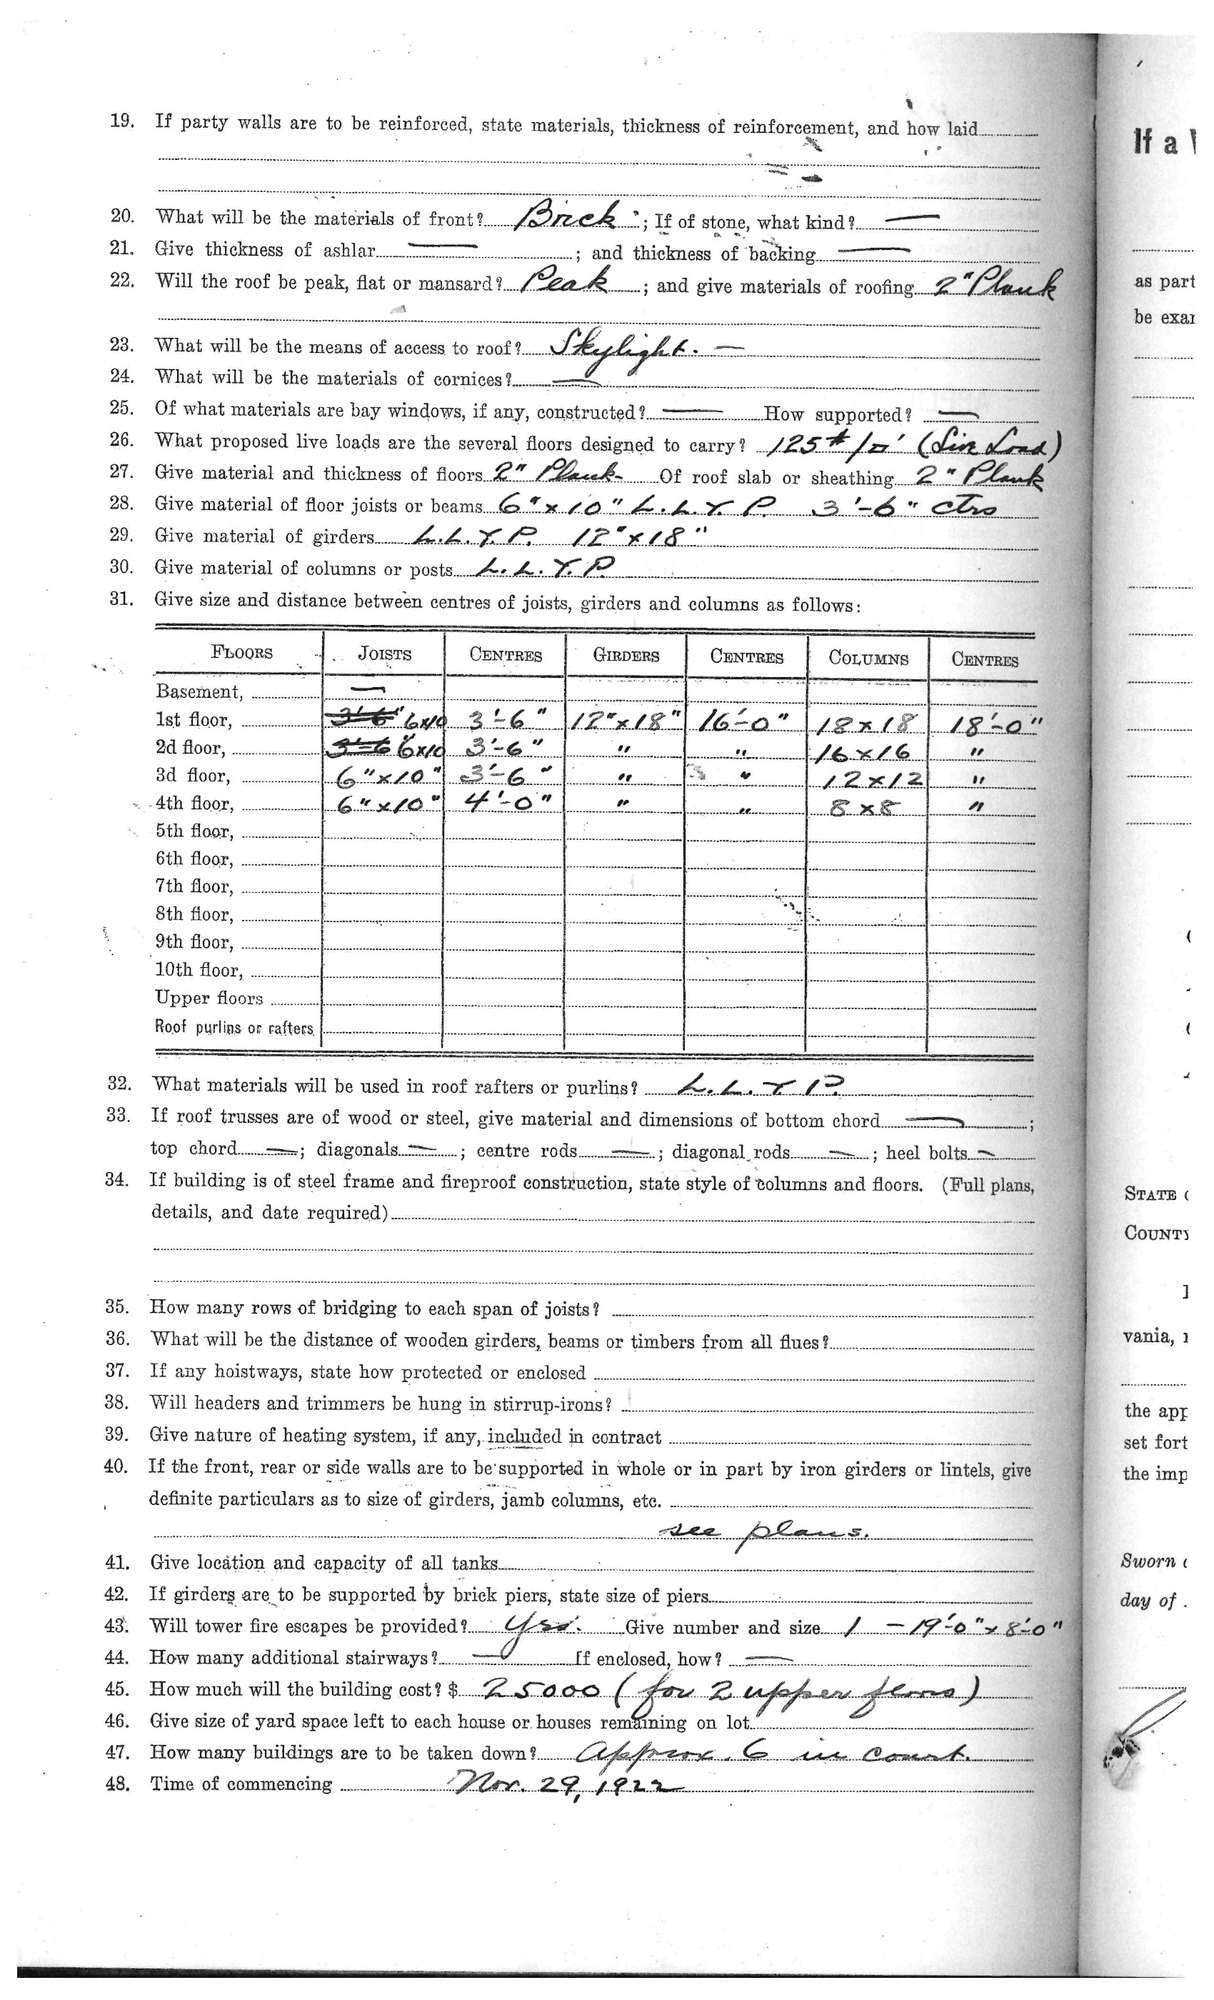 19. If party walls are to be reinforced, state materials, thickness of reinforcement, and how laid
20. What will be the materials of front? Brick ; If of stone, what kind? —
21. Give thickness of ashlar — ; and thickness of backing —
22. Will the roof be peak, flat or mansard? Peak ; and give materials of roofing 2" Plank
23. What will be the means of access to roof? Skylight. —
24. What will be the materials of cornices? —
25. Of what materials are bay windows, if any, constructed? — How supported? —
26. What proposed live loads are the several floors designed to carry? 125# /□' (Live Load)
27. Give material and thickness of floors 2" Plank- Of roof slab or sheathing 2" Plank
28. Give material of floor joists or beams 6" x 10" L. L. Y. P. 3'-6" ctrs
29. Give material of girders L. L. Y. P. 12" x 18"
30. Give material of columns or posts L. L. Y. P.
31. Give size and distance between centres of joists, girders and columns as follows:
FLOORS JOISTS CENTRES GIRDERS CENTRES COLUMNS CENTRES
Basement, —
1st floor, 3'-6" 6x10 3'-6" 12" x 18" 16'-0" 18 x 18 18'-0"
2d floor, 3'-6 6x10 3'-6" " " 16 x 16 "
3d floor, 6" x 10" 3'-6" " " 12 x 12 "
4th floor, 6" x 10" 4'-0" " " 8 x 8 "
5th floor,
6th floor,
7th floor,
8th floor,
9th floor,
10th floor,
Upper floors
Roof purlins or rafters
32. What materials will be used in roof rafters or purlins? L. L. Y P.
33. If roof trusses are of wood or steel, give material and dimensions of bottom chord — ;
top chord — ; diagonals — ; centre rods — ; diagonal rods — ; heel bolts —
34. If building is of steel frame and fireproof construction, state style of columns and floors. (Full plans,
details, and date required)
35. How many rows of bridging to each span of joists?
36. What will be the distance of wooden girders, beams or timbers from all flues?
37. If any hoistways, state how protected or enclosed
38. Will headers and trimmers be hung in stirrup-irons?
39. Give nature of heating system, if any, included in contract
40. If the front, rear or side walls are to be supported in whole or in part by iron girders or lintels, give
definite particulars as to size of girders, jamb columns, etc.
see plans.
41. Give location and capacity of all tanks
42. If girders are to be supported by brick piers, state size of piers
43. Will tower fire escapes be provided? Yes. Give number and size 1 — 19'-0" x 8'-0"
44. How many additional stairways? — If enclosed, how? —
45. How much will the building cost? $ 25000 (for 2 upper floors)
46. Give size of yard space left to each house or houses remaining on lot
47. How many buildings are to be taken down? Approx. 6 in court.
48. Time of commencing Nov. 29, 1922
If a
as part
be exam
STATE
COUNTY
vania,
the app
set fort
the imp
Sworn
day of